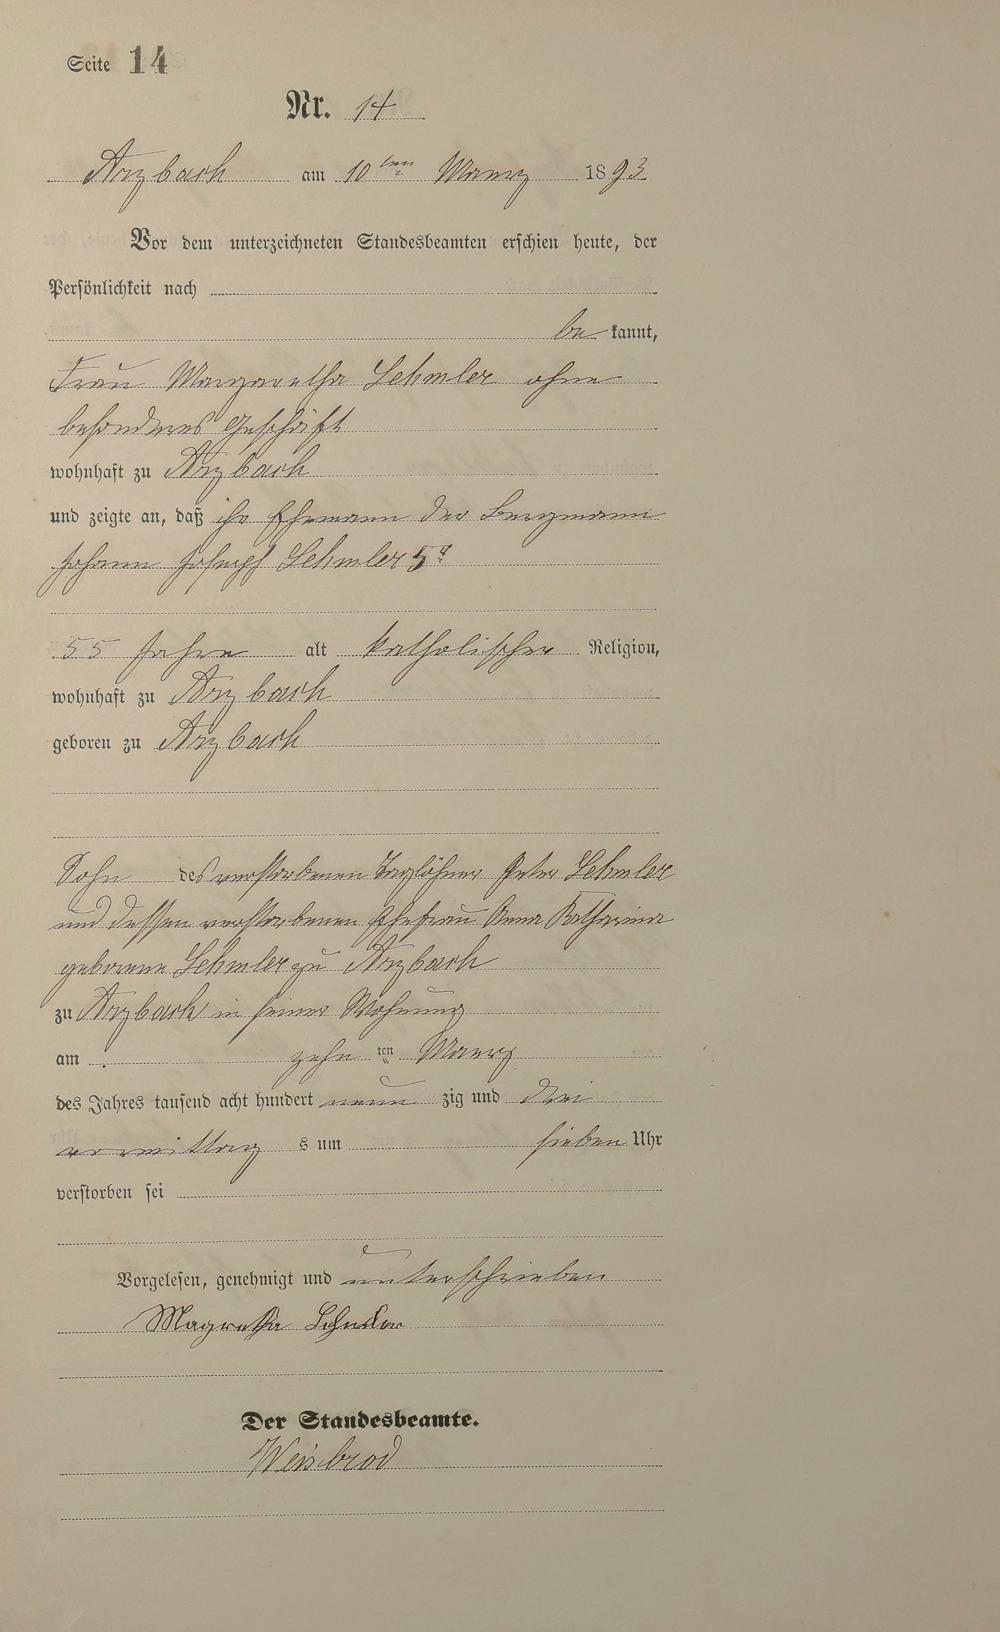 Seite 14
Nr. 14
Arzbach am 10ten Maerz 1893
Vor dem unterzeichneten Standesbeamten erschien heute, der
Persönlichkeit nach
be kannt,
Frau Margaretha Lehmler ohne
besonderes Geschäft
wohnhaft zu Arzbach
und zeigte an, daß ihr Ehemann der Bergmann
Johann Joseph Lehmler 5r
55 Jahre alt katholischer Religion,
wohnhaft zu Arzbach
geboren zu Arzbach
Sohn des verstorbenen Taglöhner Peter Lehmler
und dessen verstorbenen Ehefrau Anna Katharina
geborene Lehmler zu Arzbach
zu Arzbach in seiner Wohnung
am zehn ten Maerz
des Jahres tausend acht hundert neun zig und drei
vormittag s um sieben Uhr
verstorben sei
Vorgelesen, genehmigt und unterschrieben
Magretha Lehmler
Der Standesbeamte.
Weisbrod